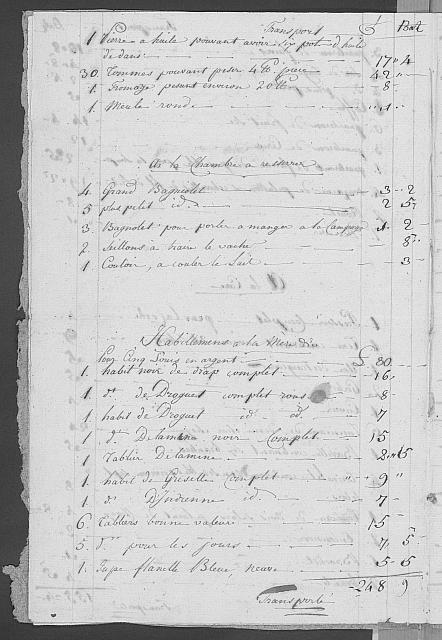 Transport £ Bat
1 Pierre a huile pouvant avoir six pots d'huile
dedans 17 " 4
30. Tommes pouvant peser 4 ℔ piece 42 "
1 Fromage pesant environ 20 ℔ 8 -
1 Meule ronde " 1 "
A la Chambre a reserrer
4 Grand Bagnolet 3 - 2
5 plus petit id. 2 5 -
3 Bagnolet pour porter a manger a la Campagne 1 2
2 Seillons à traire le vache 8 -
1 Couloir, a couler le Lait 3 -
Habillemens a la Mere
Cinq Louis en argent £ 80
1. habit noir de drap complet 16 -
1 d.° de Droguet complet 8
1 habit de Droguet id. id. 7
1 d.° Delamina noir Complet 15
1 Tablier Delamine 2 " 15
1 habil de Griselle Complet " 9 "
1 d.° D'Indienne id. 7 -
6. Tabliers bonne valeur 15
5. d.° pour les jours 7, 5
1. Jupe flanelle Bleue, neuve 5 - 5
248 9
Transporté